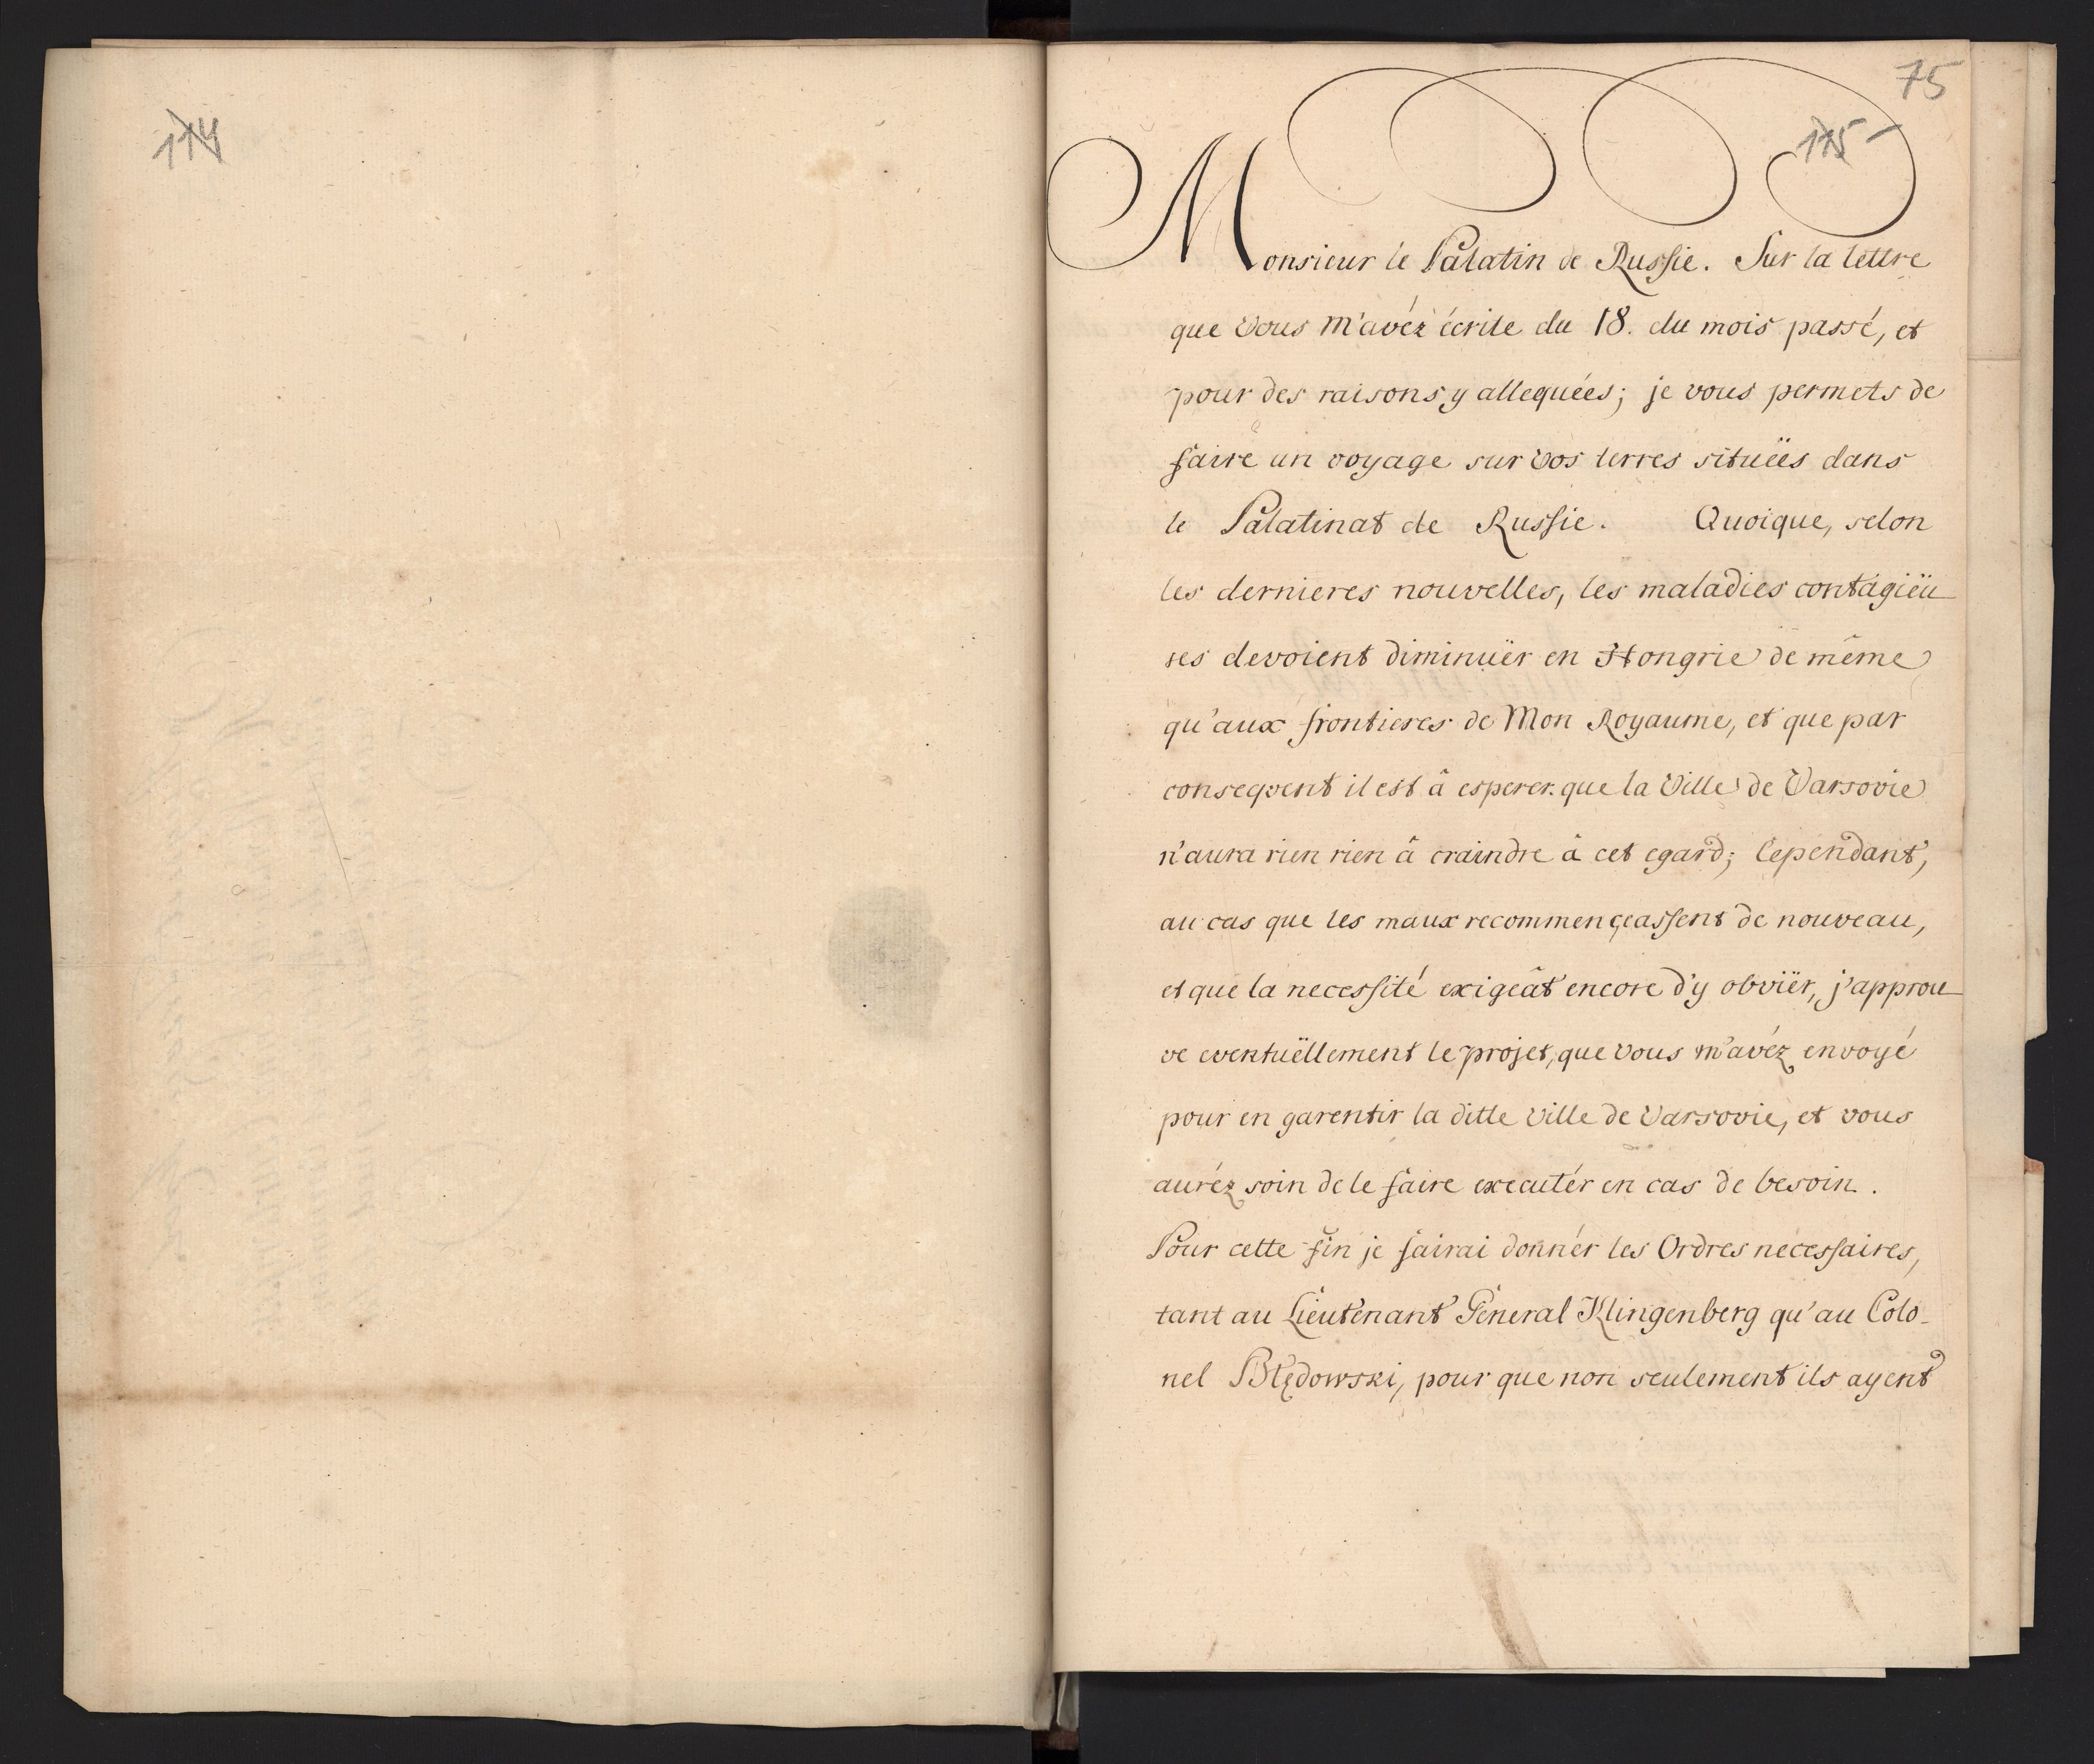 114
75
115
Monsieur le Palatin de Russie. Sur la lettre
que Vous M'avéz écrite du 18. du mois passé, et
pour des raisons y allequées; je vous permets de
faire un voyage sur Vos terres situëes dans
le Palatinat de Russie. Quoique, selon
les dernieres nouvelles, les maladies contagiëu
ses devoient diminuër en Hongrie de même
qu'aux frontieres de Mon Royaume, et que par
conseqvent il est â esperer que la Ville de Varsovie
n'aura rien rien â craindre â cet egard; Cependant,
au cas que les maux recommençeassent de nouveau,
et que la necessité exigeât encore d'y obviër, j'approu
ve eventuëllement le projet, que Vous m'avéz envoyé
pour en garentir la ditte Ville de Varsovie, et vous
auréz soin de le faire executér en cas de besoin.
Pour cette fin je fairai donnér les Ordres necessaires,
tant au Lieutenant Géneral Klingenberg qu'au Colo-
nel Błędowski, pour que non seulement ils ayent